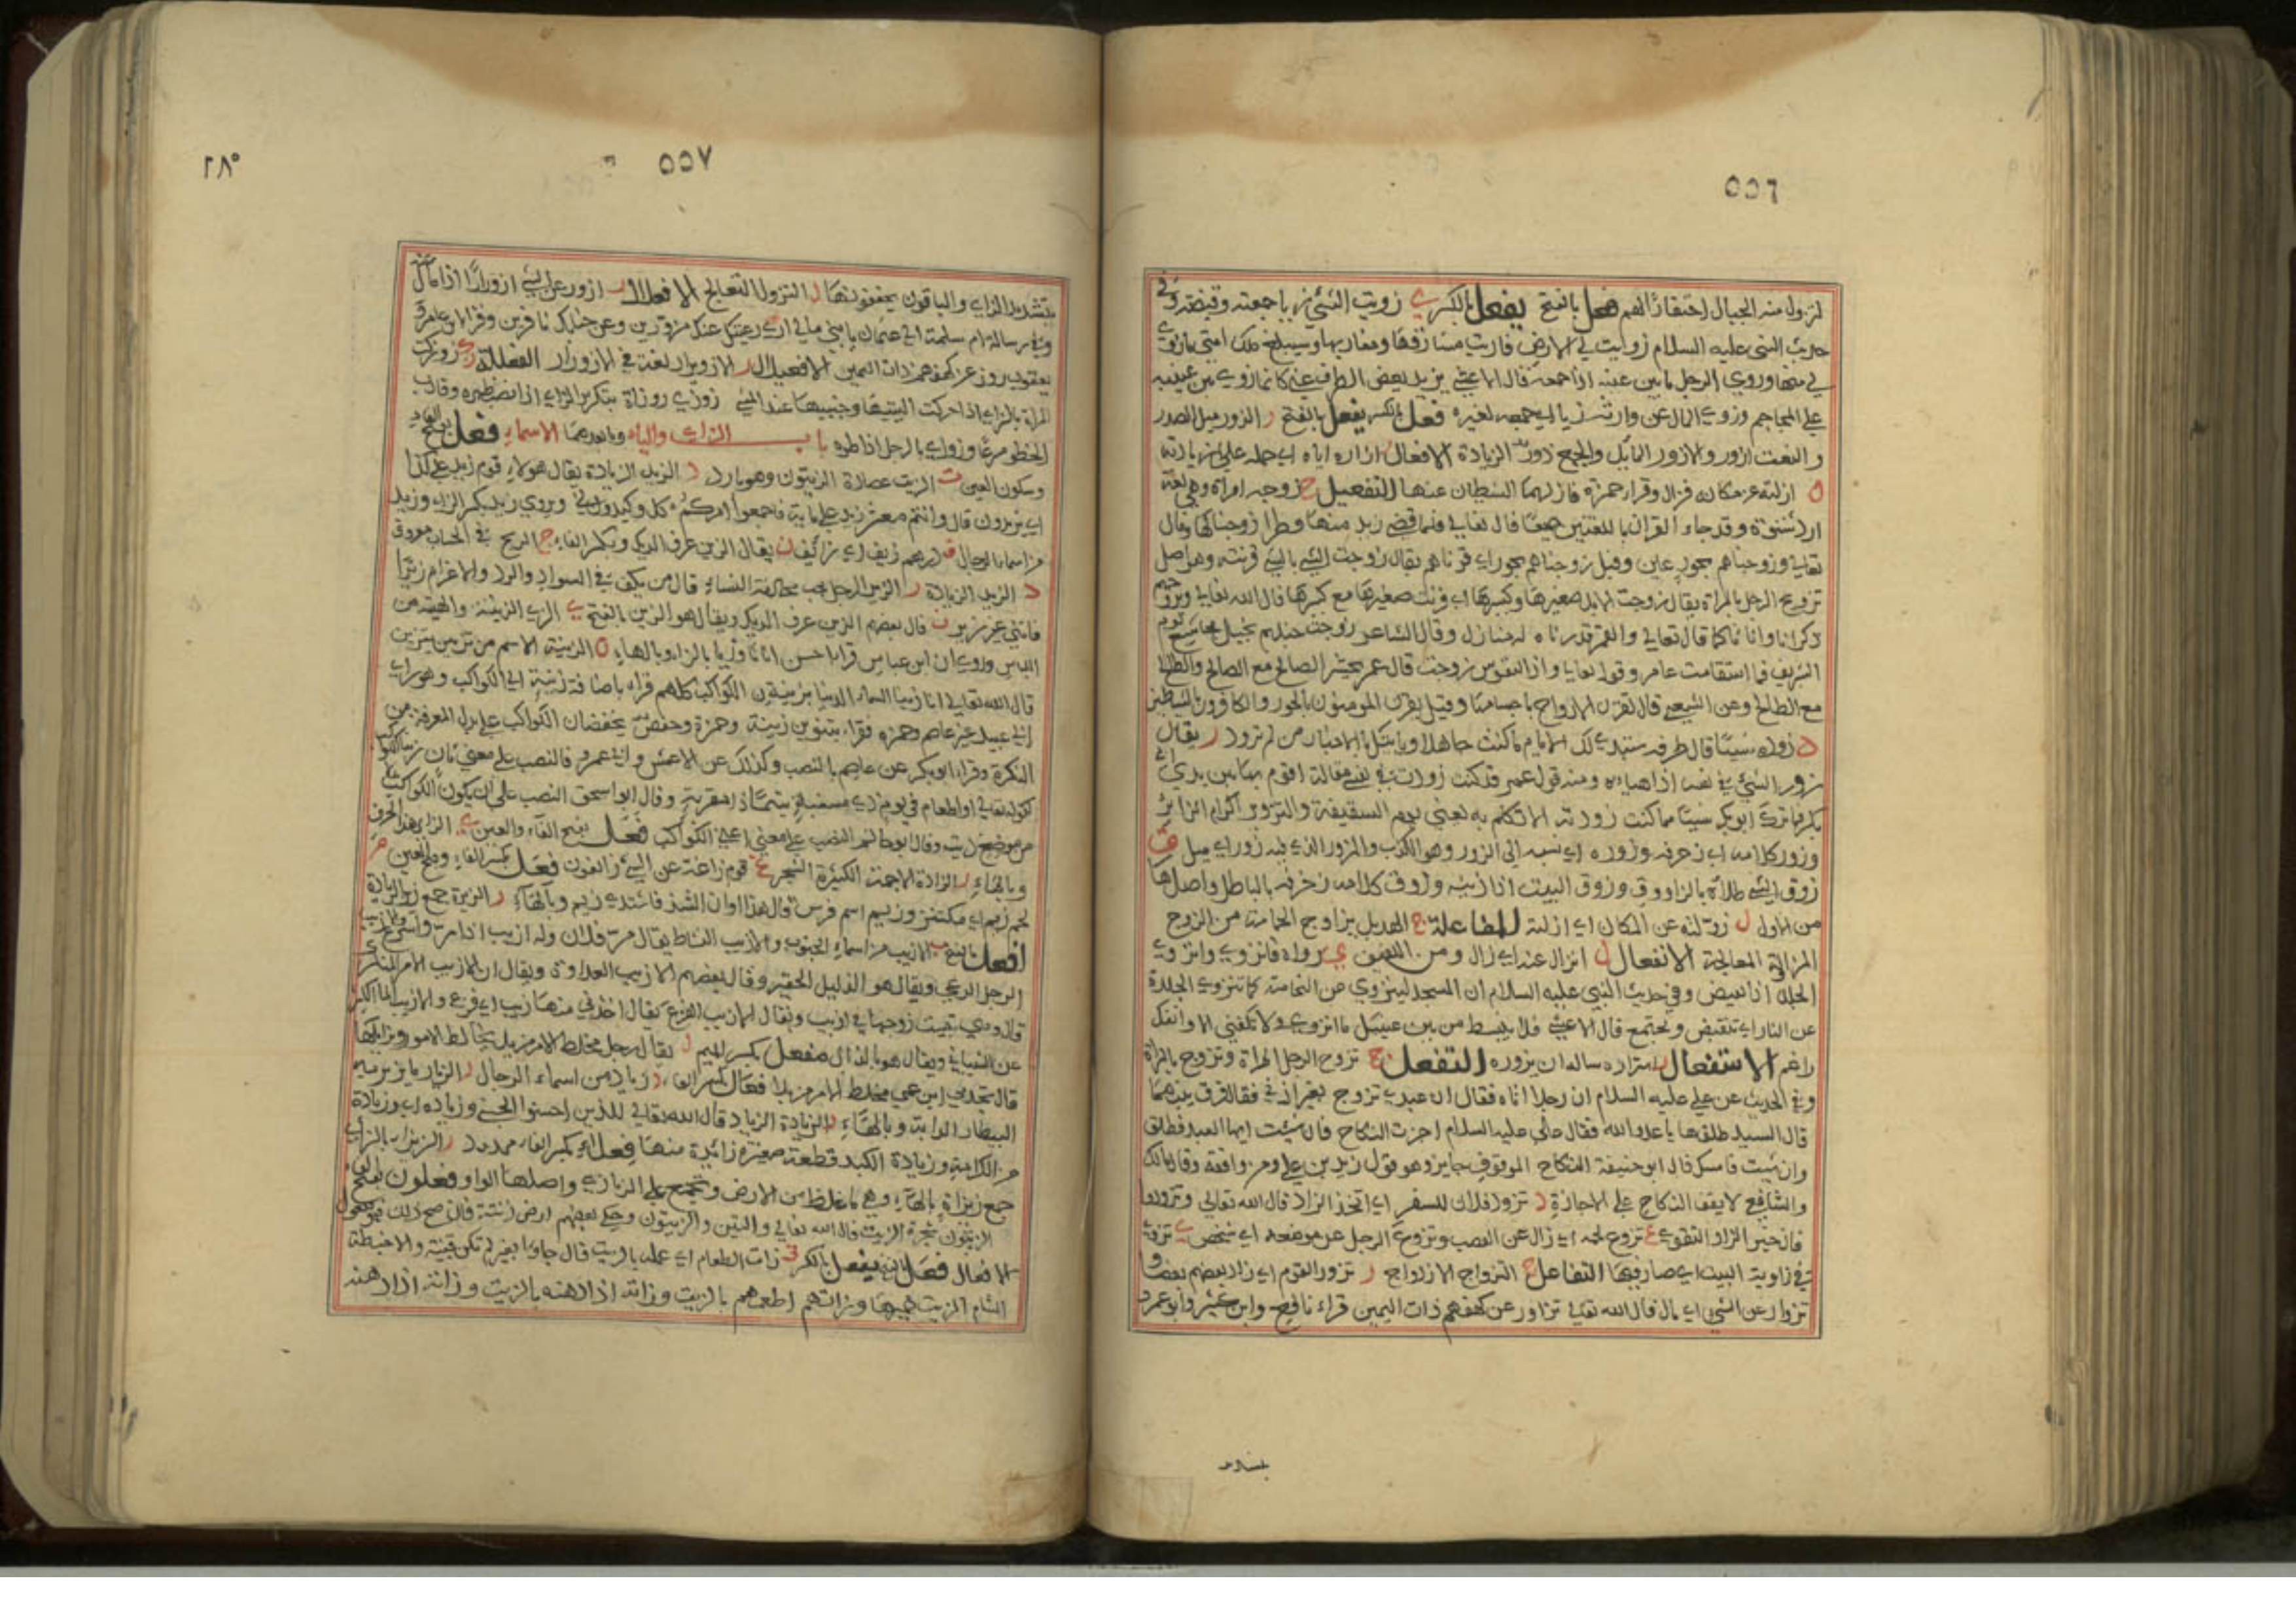 ٥٥٦
لتزول منه الجبال احتقارًا لهم فعل بالفتح يفعل بالكسر ي زويت الشيء زيا جمعته وقبضته وفي
حديث النبي عليه السلام زويت لي الارض فاريت مشارقها ومغاربها وسيبلغ ملك امتي ما زوي
لي منها وزوي الرجل ما بين عينيه اذا جمعه قال الاعشى يزيد يغض الطرف عني كانما زوي بين عينيه
علي المحاجم وزوي المال عن وارثه زيا اي جمعه لغيره فعل بالكسر يفعل بالفتح ر الزور ميل الصدر
والنعت ازور والازور المائل والجمع زور الزيادة الافعال ر ازاره اياه اي حمله على زيارته
ل ازلته عن مكانه فزال وقرا حمزة فازلهما الشيطان عنها التفعيل ج زوجه امراة وهي لغة
ازد شنؤة وقد جاء القران باللغتين جميعًا قال تعالي فلما قضى زيد منها وطرا زوجناكها وقال
تعالي وزوجناهم بحور عين وقيل زوجناهم بحور اي قرناهم يقال زوجت الشيء بالشيء قرنته وهو اصل
تزويج الرجل بالمراة يقال زوجت الابل صغيرها وكبيرها اي قرنت صغيرها مع كبيرها قال الله تعالي او يزوجهم
ذكرانا واناثا كما قال تعالي والقمر قدرناه له منازل وقال الشاعر زوجت حبلهم بحبل مجاشع
الشريف فاستقامت عامر وقوله تعالى واذا النفوس زوجت قال عمر يحشر الصالح مع الصالح والطالح
مع الطالح وعن الشعبي قال تقرن الارواح باجسامها وقيل يقرن المومنون بالحور والكافرون بالشياطين
د زوده شيئا قال طرفة ستبدي لك الايام ما كنت جاهلا وياتيك بالاخبار من لم تزود ر يقال
زور الشيء في نفسه اذا هياءه ومنه قول عمر قد كنت زورت في نفسي مقالة اقوم بها بين يدي ابي
بكر فما ترك ابو بكر شيئا مما كنت زورته الا تكلم به يعني يوم السقيفة والتزوير اكرام الزائر
وزور كلامه اي زخرفه وزوره اي نسبه الى الزور وهو الكذب والمزور الذي فيه زور اي ميل ق
زوق الشيء طلاه بالزاووق وزوق البيت اذا زينه وزوق كلامه زخرفه بالباطل واصلها
من الاول ل زولته عن المكان اي ازلته المفاعلة ج الهديل يزاوج الحمامة من الزوج
المزاولة المعالجة الانفعال ل انزال عنه اي زال ومن اللفيف ي زواه فانزوي وانزوي
الجلد اذا تقبض وفي حديث النبي عليه السلام ان المسجد لينزوي من النخامة كما تنزوي الجلدة
عن النار اي تنقبض وتجتمع قال الاعشى فلا ينبسط من بين عينيك ما انزوي ولا تلقني الا وانفك
راغم الاستفعال ر استزاره ساله ان يزوره التفعل ج تزوج الرجل المراة وتزوج بالمراة
وفي الحديث عن علي عليه السلام ان رجلا اتاه فقال ان عبدي تزوج بغير اذني فقال فرق بينهما
قال السيد طلقها يا عدو الله فقال علي عليه السلام اجزت النكاح فان شئت ايها العبد فطلق
وان شئت فامسك قال ابو حنيفة النكاح الموقوف جايز وهو قول زيد بن علي ومن وافقه وقال مالك
والشافعي لا يقف النكاح على الاجازة د تزود فلان للسفر اي اتخذ الزاد قال الله تعالي وتزودوا
فان خير الزاد التقوى تزوع لحمه اي زال عن العصب وتزوع الرجل عن موضعه اي شخص ي تزوي
في زاوية البيت اي صار فيها التفاعل ج التزاوج الازدواج ر تزاور القوم اي زار بعضهم بعضا و
تزوار عن الشيء اي مال قال الله تعالى تزاور عن كهفهم ذات اليمين قراء نافع وابن كثير وابو عمرو
٥٥٧
٢٨٥
بتشديد الزاي والباقون يخففونها ل التزول التعالج الافعلال ر ازور عن الشيء ازورارًا اذا مال عنه
وفي رسالة ام سلمة الى عثمان يا بني مالي اري رعيتك عنك مزورين وعن جنابك نافرين وقرا ابن عامر و
يعقوب تزور عن كهفهم ذات اليمين الافعيلال ر الازويرار لغة في الازورار الفعللة ي زوزت
المراة بالزاي اذا حركت اليتيها وجنبيها عند المشي زوزي زوزاة بتكرير الزاي اذا نصب ظهره وقارب
الخطو مسرعًا وزوزي بالرجل اذا طرده باب الزاي والياء وما بعدهما الاسماء فعل بفتح الفاء
وسكون العين ت الزيت عصارة الزيتون وهو بارد د الزيد الزيادة يقال هولاء قوم زيد على كذا
اي يزيدون قال وانتم معشر زيد على ماية فاجمعوا امركم كلا وكيدوني ويروي زيد بكسر الزاي وزيد
من اسماء الرجال ف درهم زيف اي زائف ن يقال الزين عرف الديك وبكسر الفاء ج الزيج في الحساب معروف
د الزيد الزيادة ر الزير الرجل يحب محادثة النساء قال من يكن في السواد والدد والاغرام زيرًا
فانني غير زير ن قال بعضهم الزين عرف الديك ويقال هو الزين بالفتح ي الزي الزينة والهيئة من
اللباس وروي ان ابن عباس قرا احسن اثاثا وزيا بالزاي وبالهاء ن الزينة الاسم من تزين يتزين
قال الله تعالى انا زينا السماء الدنيا بزينة الكواكب كلهم قراه باضافة زينة الى الكواكب وهو راي
ابي عبيد غير عاصم وحمزة فقراء بتنوين زينة وحمزة وحفص يخفضان الكواكب على بدل المعرفة من
النكرة وقراء ابو بكر عن عاصم بالنصب وكذلك عن الاعمش وابي عمرو فالنصب على معنى بان زينا الكواكب
كقوله تعالى او اطعام في يوم ذي مسغبة يتيمًا ذا مقربة وقال ابو اسحق النصب على ان يكون الكواكب بدلا
من موضع زينة وقال ابو حاتم النصب على معنى اعني الكواكب فعل بفتح الفاء والعين ي الزاي هذا الحرف
وبالهاء ر الزارة الاجمة الكثيرة الشجر غ قوم زاغة عن الشيء زائغون فعل بكسر الفاء وفتح العين م
لحم زيم اي مكتنز وزيم اسم فرس قال هذا اوان الشد فاشتدي زيم وبالهاء ر الزيرة جمع زير الزيارة
افعل بالفتح ب الازيب من اسماء الجنوب والازيب النشاط يقال مر فلان وله ازيب اذا مر مرا سريعا والازيب
الرجل الدعي ويقال هو الذليل الحقير وقال بعضهم الازيب العداوة ويقال ان الازيب الامر المنكر
قال ومن تبيت زوجها في ازيب ويقال الازيب الفزع يقال اخذني منها ازيب اي فزع والازيب الماء الكثير
عن الشيباني ويقال هو بالذال مفعل بكسر الميم ل يقال رجل مخلط الامر مزيل يخالط الامور ويزايلها
قال تجدني ابن عمي مخلط الامر مزيلا فعال بكسر الفاء د زياد من اسماء الرجال ر الزيار ما يزير به
البيطار الدابة وبالهاء د الزيادة الزياد قال الله تعالى للذين احسنوا الحسنى وزيادة اي وزيادة
من الكرامة وزيادة الكبد قطعة صغيرة زائدة منها فعلاء بكسر الفاء ممدود ز الزيزاء بالزاي
جمع زيزاة بالهاء وهي ما غلظ من الارض وتجمع على الزيازي واصلها الواو فعلون بفتح الفاء
الزيتون شجرة الزيت قال الله تعالى والتين والزيتون وحكى بعضهم ارض زتنة فان صح ذلك فهو فيعول
الافعال فعل بالفتح يفعل بالكسر ت زات الطعام اي عمله بالزيت قال جاوا بعير لم تكن يمنية ولا حنطة
الشام المزيت خميرها وزاتهم اطعمهم بالزيت وزاته اذا دهنه بالزيت وزانه اذا دهنه